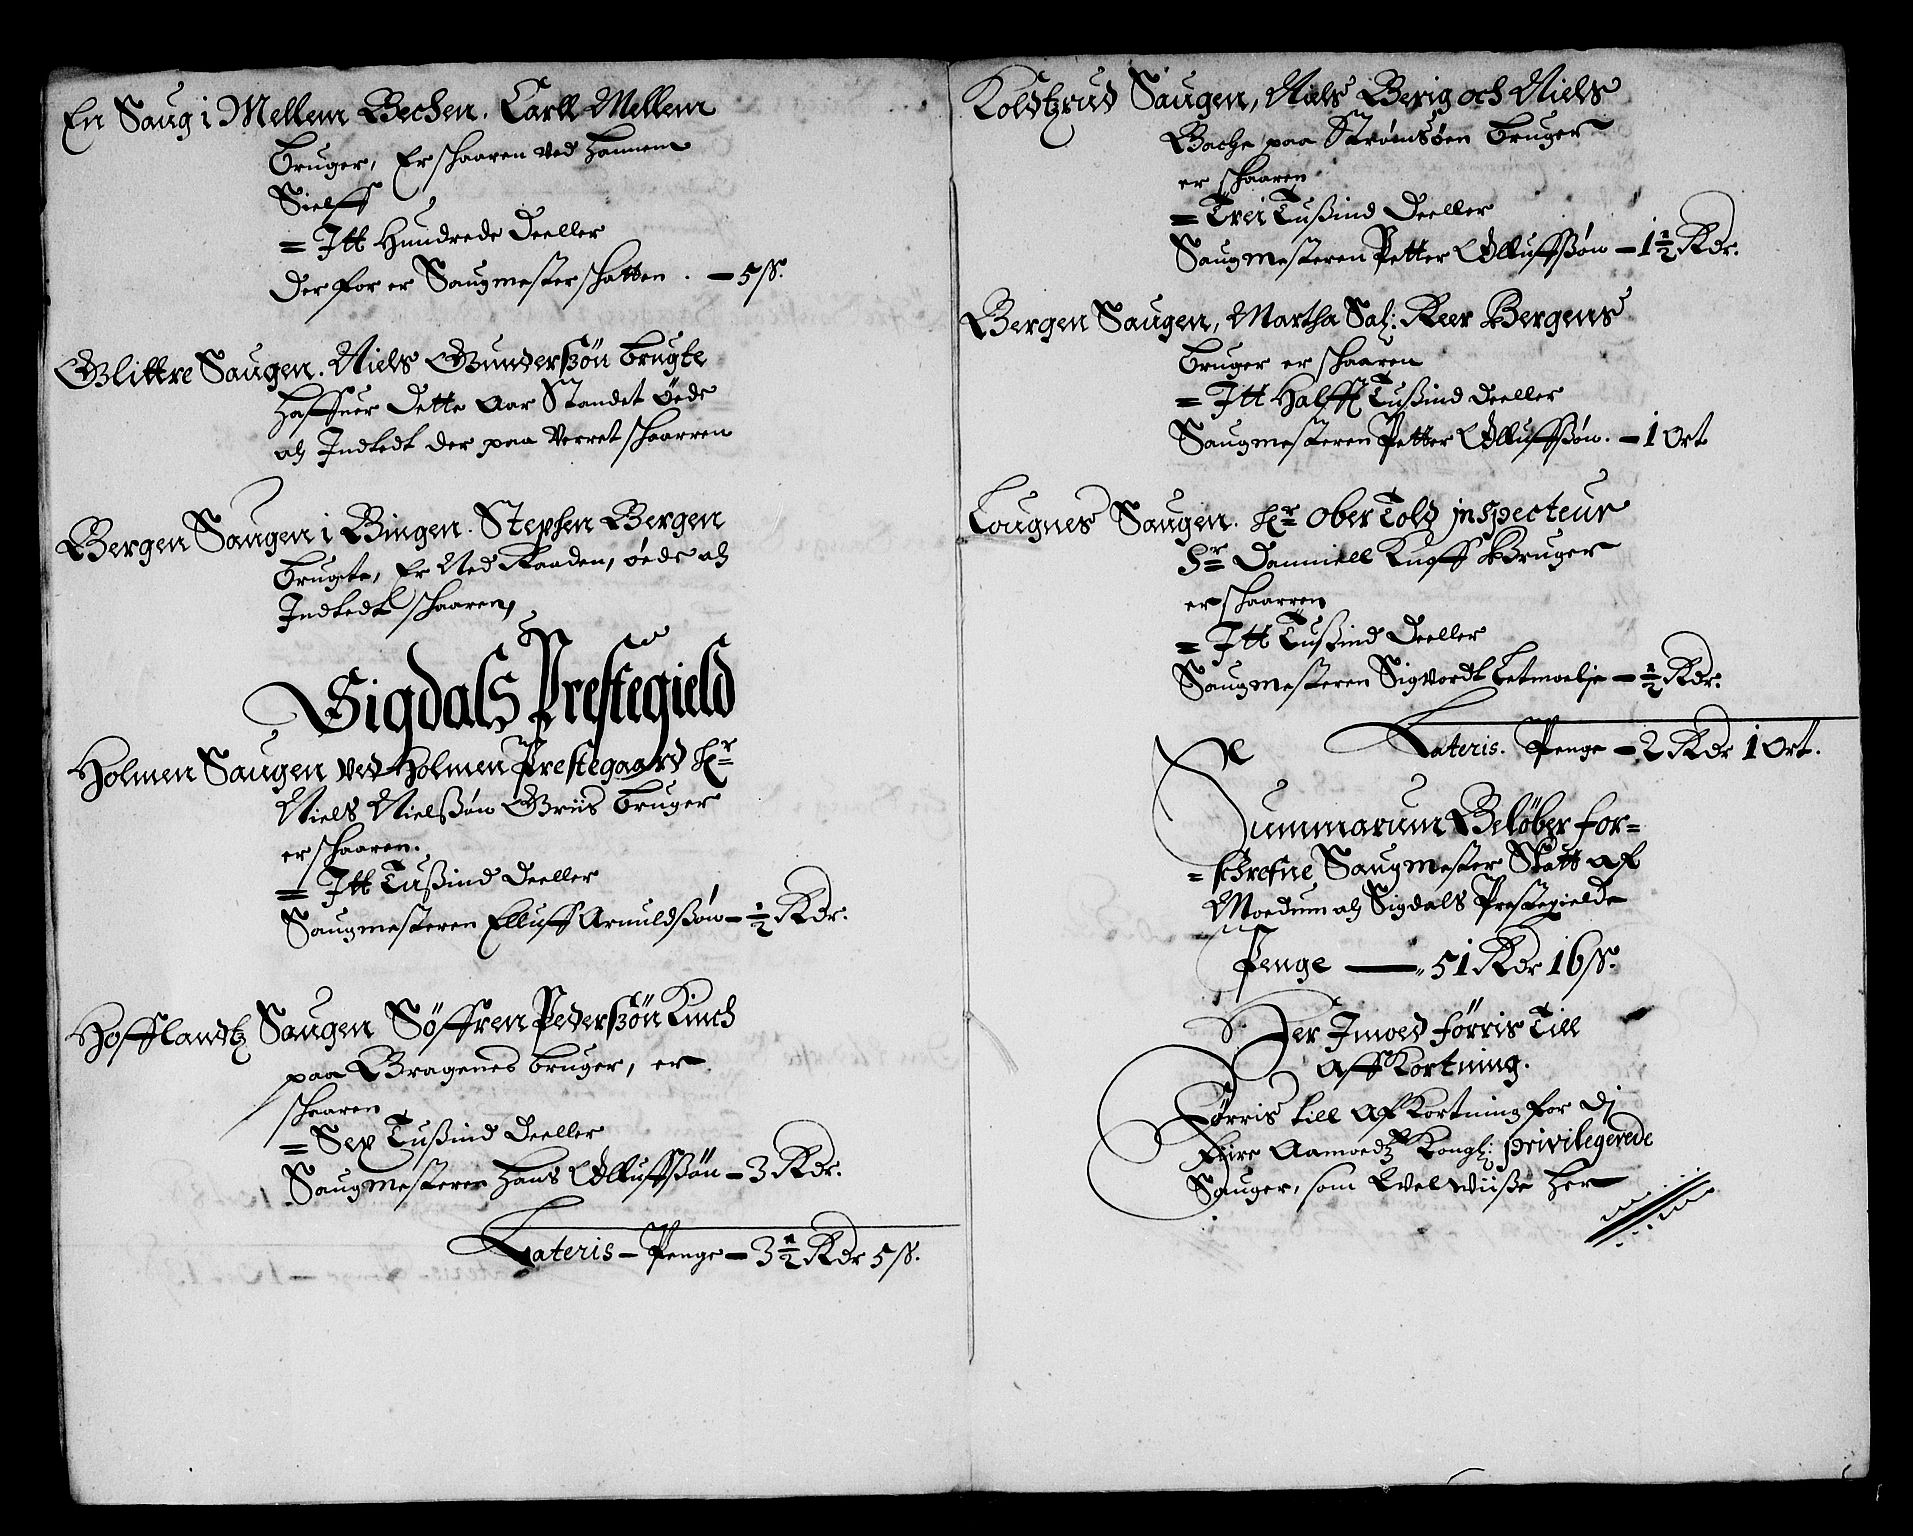 En Saug i Mellem Bechen. Carll Mellem
bruger, Er schaaren ved hannem
Sielff
= Itt Hundrede Deeller
Der for er Saugmester schatten. — 5 ss.
Glittre Saugen. Niels Gunderßøn brugte
haffuer dette aar Standet øede
oc Indtedt der paa verret schaarren
Bergen Saugen i Bingen. Stephen Bergen
brugte, Er Ned Raaden, øede oc
Indtedt schaaren,
Sigdals Prestegield
Holmen Saugen ved Holmen Prestegaard Hr
Niels Nielßøn Griis bruger
er schaaren.
= Itt Tußind Deeller
Saugmesteren Elluff Arnuldßøn — ½ Rdr.
Hofflandtz Saugen Søffren Pederßøn Kinch
paa Bragenes bruger, er
schaaren
= Sex Tußind Deeller
Saugmesteren Hans Olluffßøn — 3 Rdr.
Lateris — Penge — 3 ½ Rdr 5 ss.
Koldtzrud Saugen, Niels Berig och Niels
Bache paa Strømsøen bruger
er schaaren
= Trei Tußind Deeller
Saugmesteren Petter Olluffßøn — 1 ½ Rdr.
Bergen Saugen, Martha Sal: Reer Bergens
bruger er schaaren
= Itt Halfft Tußind Deeller
Saugmesteren Petter Olluffßøn. — 1 Ort
Lougnes Saugen. Hr Ober Told inspecteur
Sr Danniell Knoff Bruger
er schaarren
= Itt Tußind Deeller
Saugmesteren Sigvordt — ½ Rdr.
Lateris. Penge — 2 Rdr 1 Ort.
Summarum Beløber for=
=schrefne Saugmester Skatt af
Moedum oc Sigdals Prestegielde
Penge — 51 Rdr 16 ss.
Her Imoed førris Till
aff Kortning.
Førris till afKortning for di
Fire Aamoedtz Kongl: privilegerede
Sauger, som Welwiiße Her